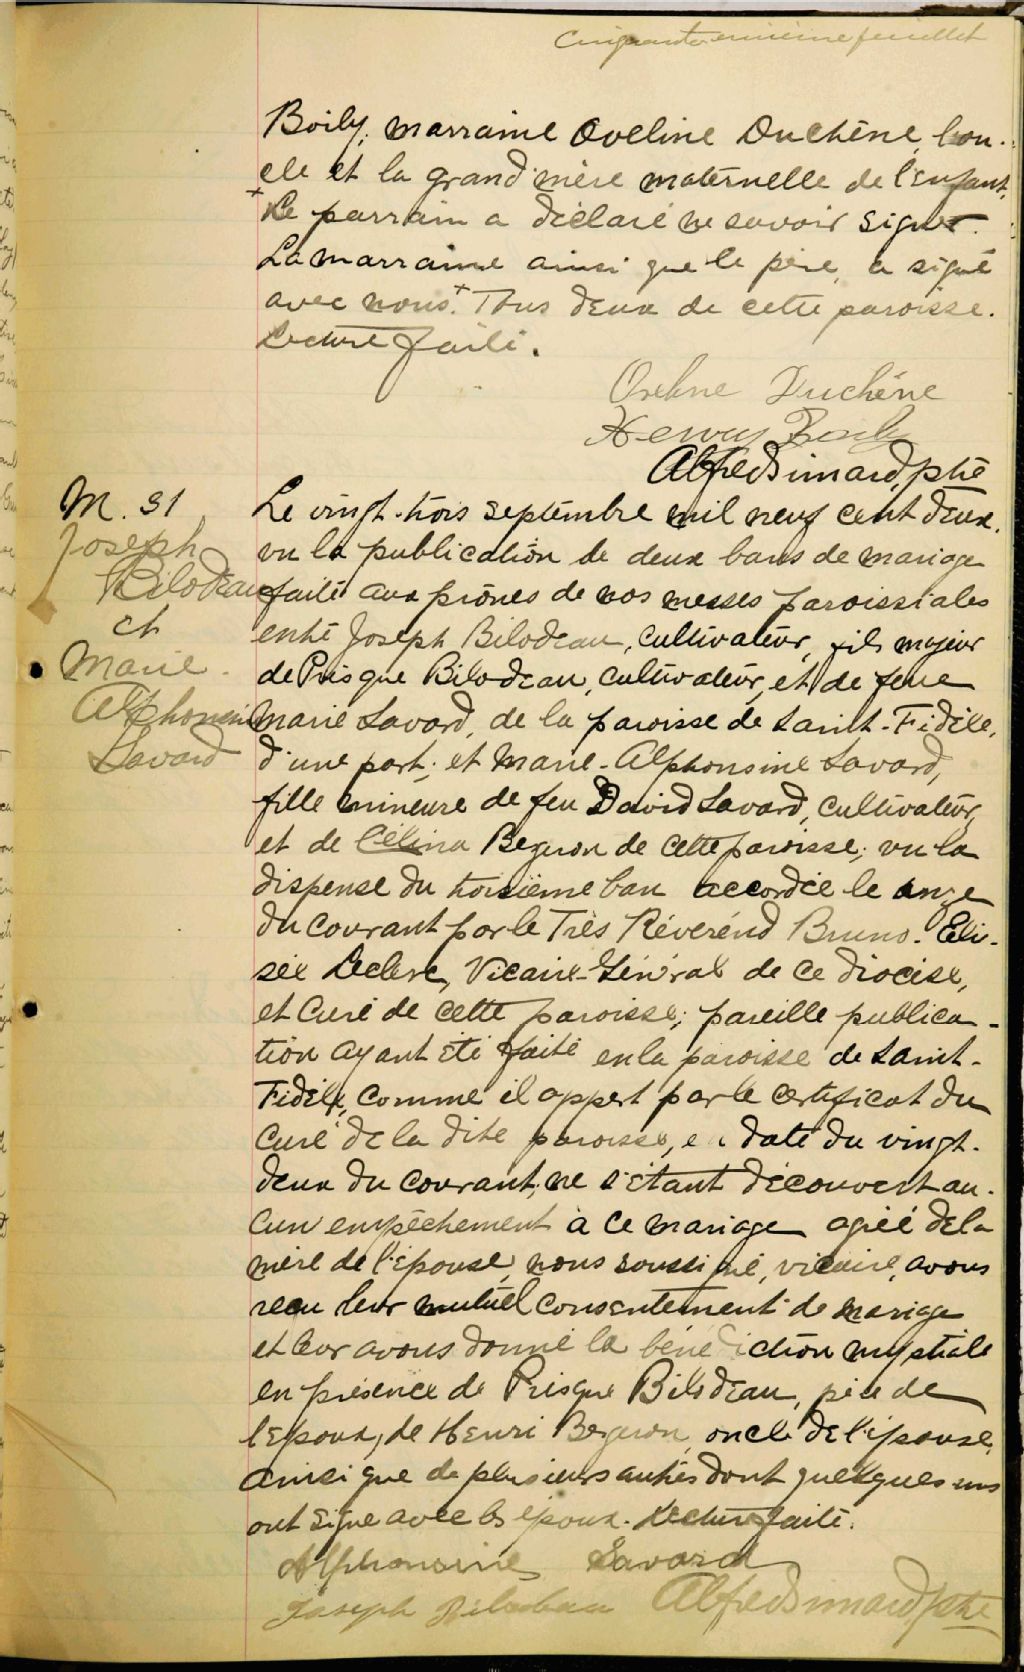 Cinquante-unième feuillet
Boily, marraine Oveline Duchêne, l'on-
cle et la grand'mère maternelle de l'enfant.
+ Le parrain a déclaré ne savoir signer.
La marraine ainsi que le père, a signé
avec nous.+ Tous deux de cette paroisse.
Lecture faite.
Oveline Duchêne
Henry Boily
Alfred Simard, ptre
M. 31
Joseph
Bilodeau
et
Marie
Alphonsine
Savard
Le vingt-trois septembre mil neuf cent deux,
vu la publication de deux bans de mariage
faite aux prônes de nos messes paroissiales
entre Joseph Bilodeau, cultivateur, fils majeur
de Prisque Bilodeau, cultivateur, et de feue
Marie Savard, de la paroisse de Saint-Fidèle,
d'une part; et Marie-Alphonsine Savard,
fille mineure de feu David Savard, cultivateur,
et de Célina Bergeron de cette paroisse; vu la
dispense du troisième ban accordée le onze
du courant par le Très Révérend Bruno-Eli-
sée Leclerc, Vicaire-Général de ce diocèse,
et Curé de cette paroisse; pareille publica-
tion ayant été faite en la paroisse de Saint-
Fidèle, comme il appert par le certificat du
Curé de la dite paroisse, en date du vingt-
deux du courant; ne s'étant découvert au-
cun empêchement à ce mariage agréé de la
mère de l'épouse, nous soussigné, vicaire, avons
reçu leur mutuel consentement de mariage
et leur avons donné la bénédiction nuptiale
en présence de Prisque Bilodeau, père de
l'époux, de Henri Bergeron, oncle de l'épouse,
ainsi que de plusieurs autres dont quelques uns
ont signé avec les époux. Lecture faite.
Alphonsine Savard
Joseph Bilodeau Alfred Simard, ptre